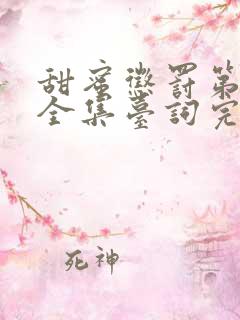 甜蜜懲罰第
全集臺詞完
死神